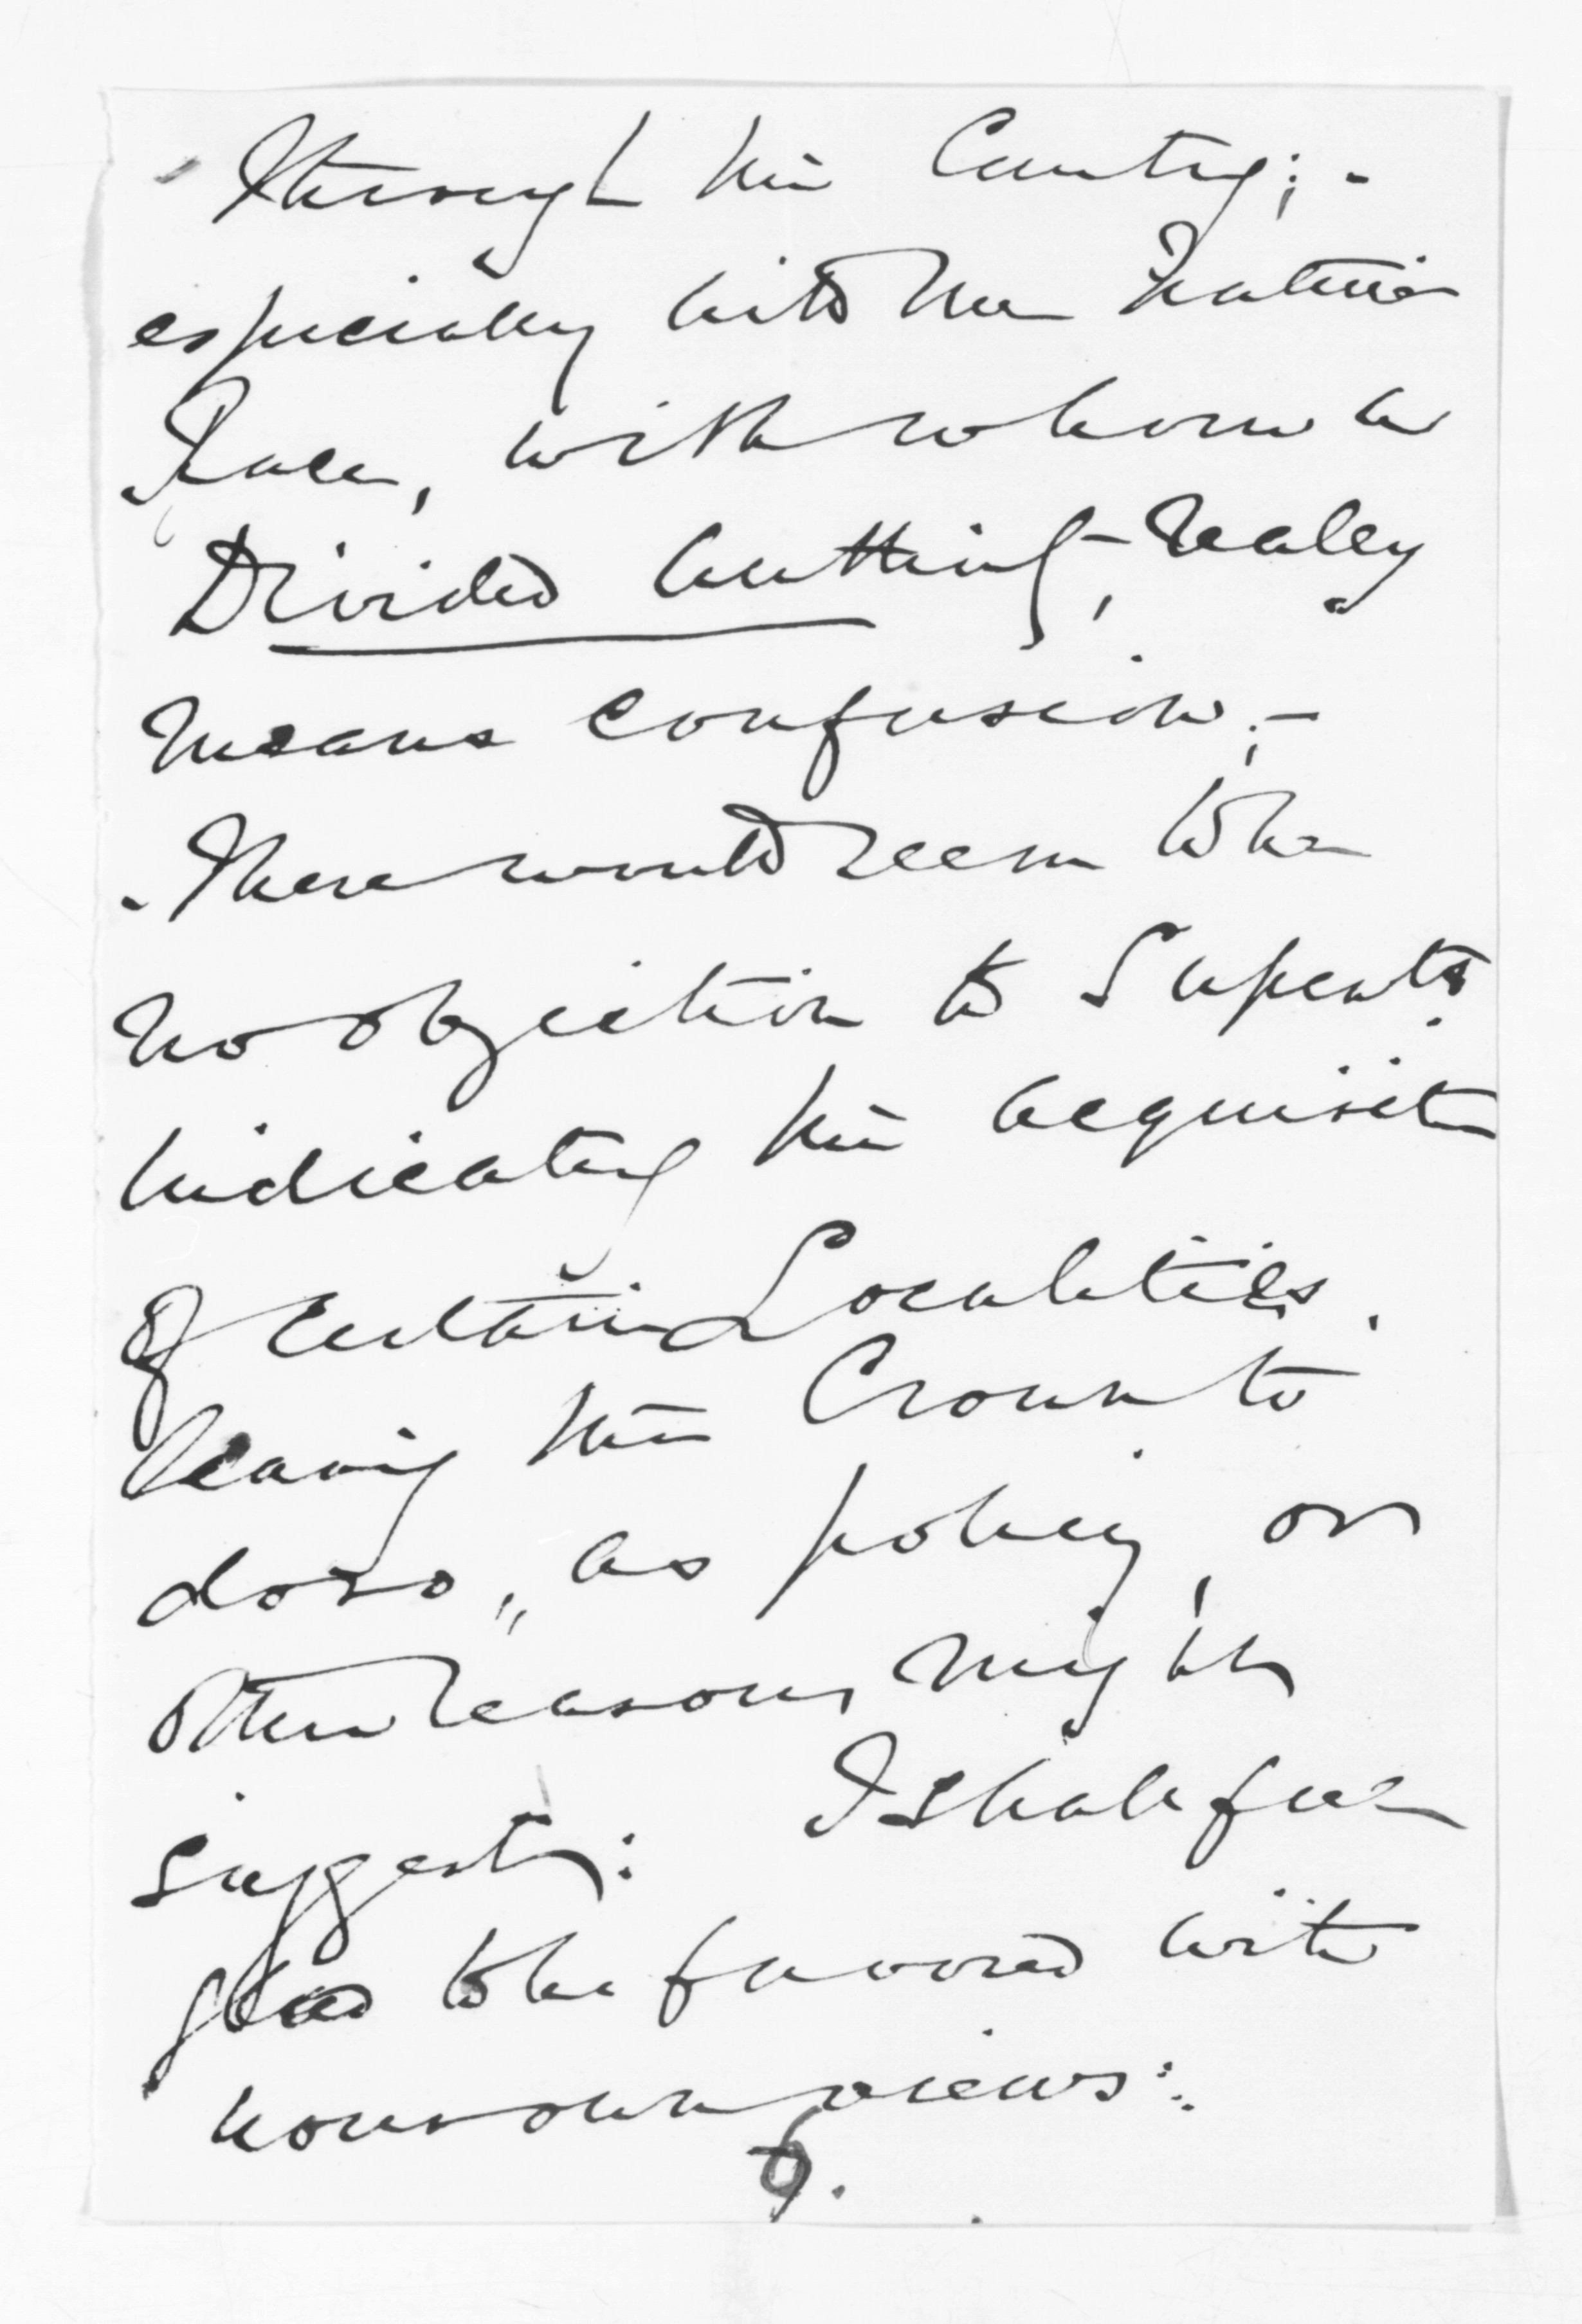 through the Country; -
especially with the Native
Race, with whom a
Divided authority, really
means confusion; -
There would seem to be
no objection to Supents.
indicating the acquisitn
of certain Localities.
leaving the Crown to
do so,, as policy, or
other reasons might
suggest: I shall feel
glad to be favored with
your own views:.
6.